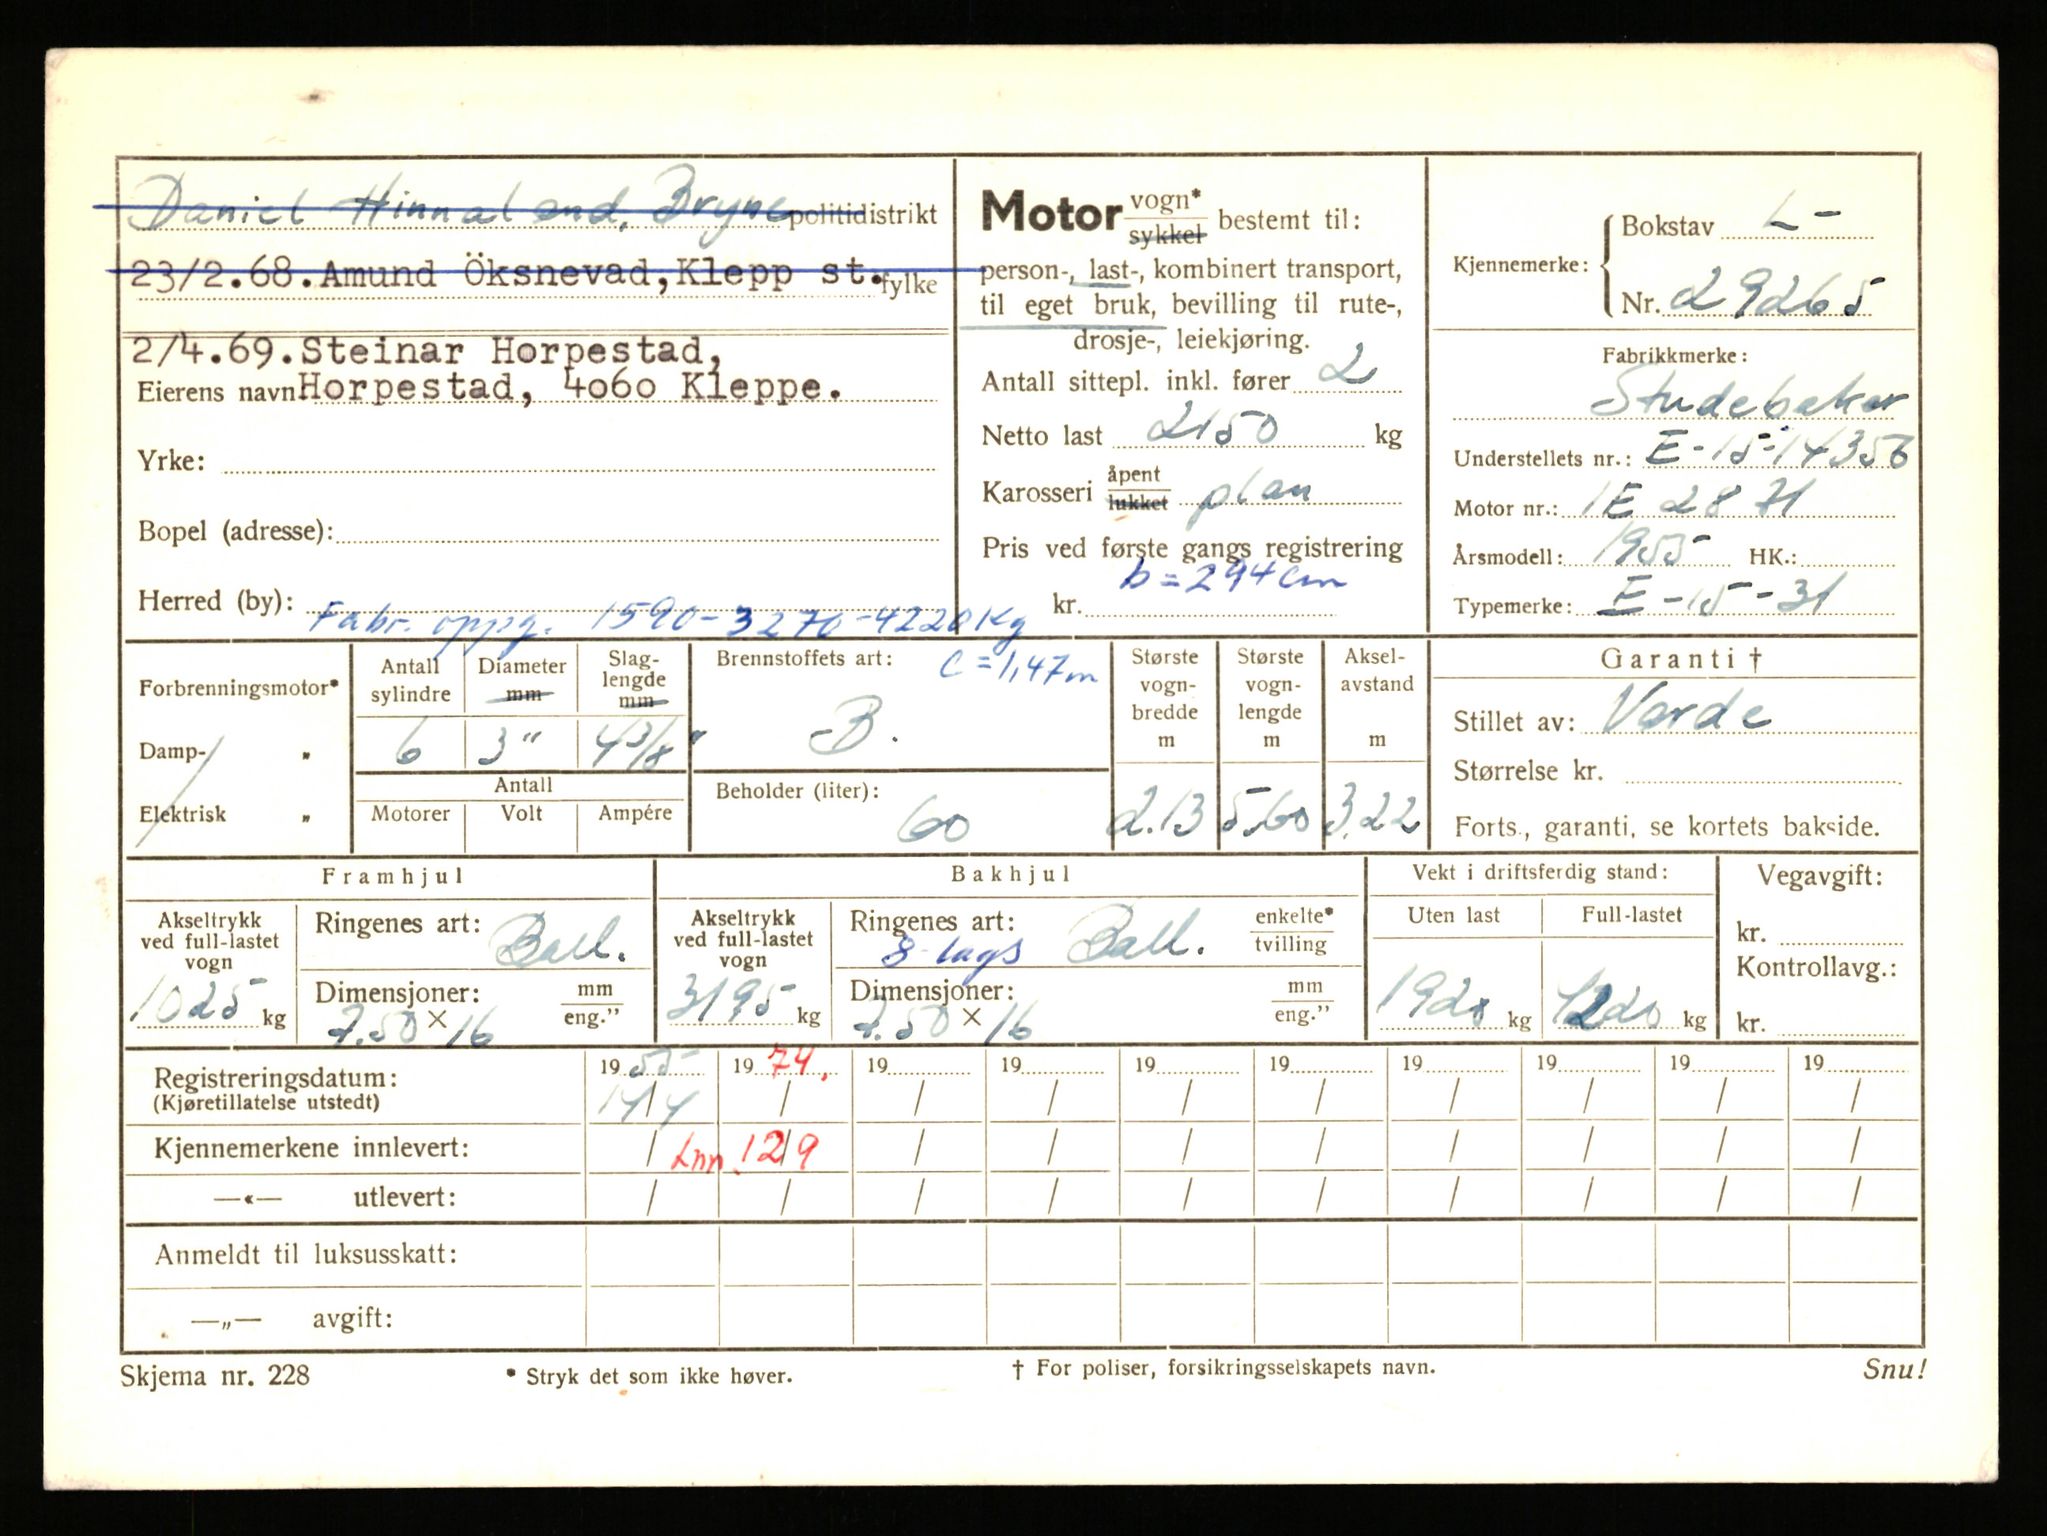 Daniel Hinnaland, Bryne politidistrikt
23/2.68. Amund Öksnevad, Klepp st. fylke
2/4.69. Steinar Horpestad,
Eierens navn Horpestad, 4060 Kleppe.
Yrke:
Bopel (adresse):
Herred (by):
Fabr. oppg. 1590-3270-4220 Kg
Motor vogn* sykkel bestemt til:
person-, last-, kombinert transport,
til eget bruk, bevilling til rute-,
drosje-, leiekjøring.
Antall sittepl. inkl. fører 2
Netto last 2150 kg
Karosseri åpent lukket plan
Pris ved første gangs registrering
b = 294 cm
kr.
Kjennemerke: Bokstav L-
Nr. 29265
Fabrikkmerke:
Studebaker
Understellets nr.: E-15-14356
Motor nr.: 1E 28 71
Årsmodell: 1955 HK.:
Typemerke: E-15-31
Forbrenningsmotor*
Damp- "
Elektrisk "
Antall sylindre 6
Diameter mm 3"
Slaglengde mm 4 3/8"
Antall
Motorer Volt Ampére
Brennstoffets art: c = 1,47 m
B.
Beholder (liter):
60
Største vognbredde m 2.13
Største vognlengde m 5.60
Akselavstand m 3.22
Garanti †
Stillet av: Varde
Størrelse kr.
Forts., garanti, se kortets bakside.
Framhjul
Akseltrykk ved full-lastet vogn 1025 kg
Ringenes art: Ball.
Dimensjoner: mm eng."
7.50 × 16
Bakhjul
Akseltrykk ved full-lastet vogn 3195 kg
Ringenes art: enkelte* tvilling
8-lags Ball.
Dimensjoner: mm eng."
7.50 × 16
Vekt i driftsferdig stand:
Uten last Full-lastet
1920 kg 4220 kg
Vegavgift:
kr.
Kontrollavg.:
kr.
Registreringsdatum: 19 55 19 74. 19 19 19 19 19 19 19 19
(Kjøretillatelse utstedt) 14/4 / / / / / / / / /
Kjennemerkene innlevert: / Lnn. 12/9 / / / / / / / /
—«— utlevert: / / / / / / / / / /
Anmeldt til luksusskatt:
—„— avgift:
Skjema nr. 228 * Stryk det som ikke høver. † For poliser, forsikringsselskapets navn. Snu!